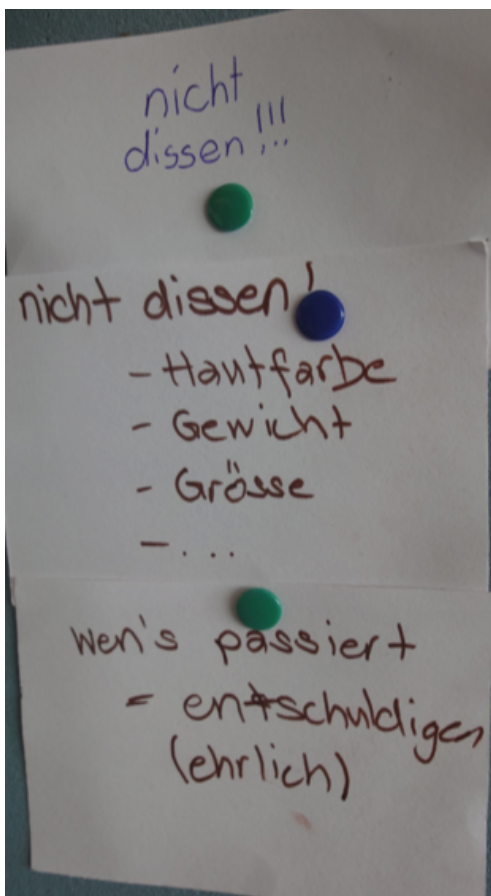 nicht
dissen!!!
nicht dissen!
- Hautfarbe
- Gewicht
- Grösse
- ...
wen's passiert
= entschuldigen
(ehrlich)